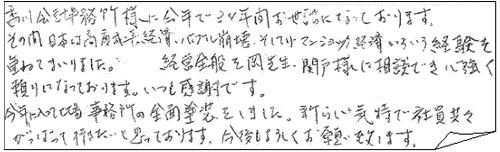 香川会計事務所様に今年で34年間お世話になっております。
その間日本は高度成長経済、バブル崩壊、そしてリーマンショック 経済いろいろ経験を
重ねてまいりました。 経営全般を岡先生、関戸様に相談でき心強く
頼りになっております。いつも感謝です。
今年に入って工場 事務所の全面塗装をしました。新らしい気持で社員共々
がんばって行きたいと思っております。今後もよろしくお願い致します。